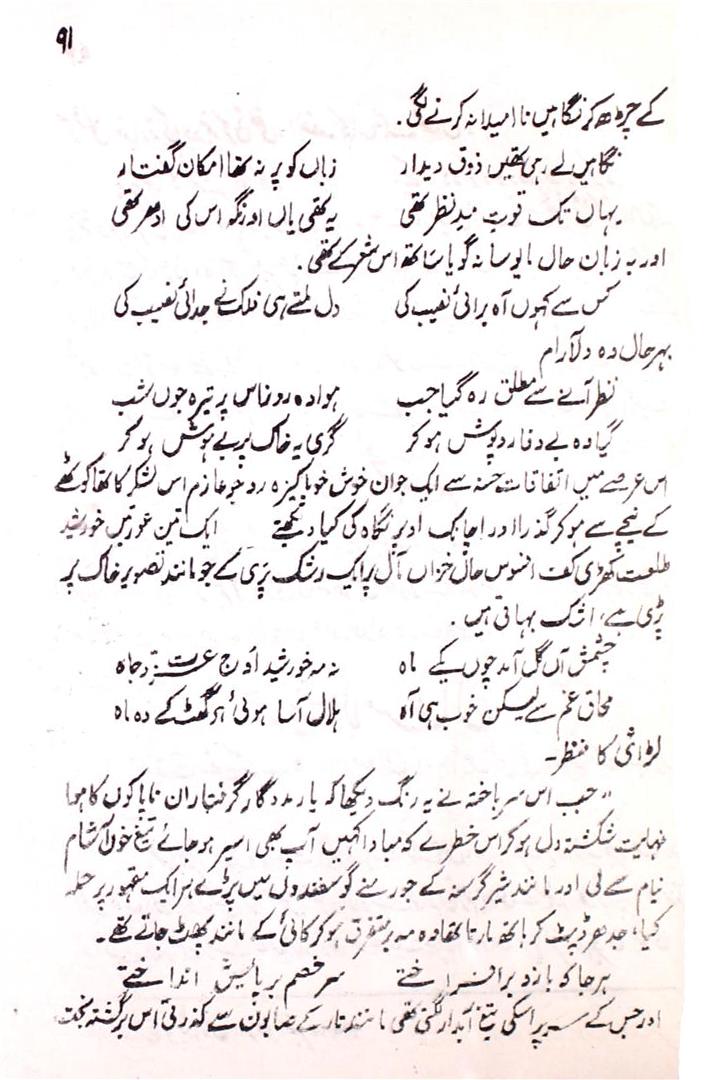 ۹۱
کے چڑھ کر نگاہیں ناامیدانہ کرنے لگی۔
نگاہیں لے رہی تھیں ذوق دیدار زباں کو پر نہ تھا امکان گفتار
یہاں تک تو بت مدِ نظر تھی یہ تھی یاں اور نگہ اس کی ادھر تھی
اور بہ زبان حال مایوسانہ گویا ساتھ اس شعر کے تھی۔
کس سے کہوں آہ برائی نصیب کی دل ملتے ہی فلک نے جدائی نصیب کی
بہر حال وہ دلآرام
نظر آنے سے مطلق رہ گیا جب ہوا وہ روز اس پر تیرہ جوں شب
گیا وہ بے وفا روپوش ہو کر گری یہ خاک پر بے ہوش ہو کر
اس عرصے میں اتفاقات حسنہ سے ایک جوان خوش خو پاکیزہ رو جو عازم اس لشکر کا تھا کوٹھے
کے نیچے سے ہو کر گذرا اور اچانک اوپر نگاہ کی کیا دیکھتے ایک تین عورتیں خورشید
طلعت کھڑی کف افسوس حال خزاں مآل پر ایک رشک پری کے جو مانند تصویر خاک پر
پڑی ہے، اشک بہاتی ہیں۔
چشمش آں گل آمد چوں یکے ماہ نہ مہ خورشید اوج عزت و جاہ
محاق غم سے لیکن خوب ہی آہ ہلال آسا ہوئی گھٹ کے وہ ماہ
لڑائی کا منظر۔
"جب اس سرباختہ نے یہ رنگ دیکھا کہ یار مددگار گرفتار ان ناپاکوں کا ہوا
نہایت شکستہ دل ہو کر اس خطرے کہ مبادا کہیں آپ بھی اسیر ہو جائے تیغ خوں آشام
نیام سے لی اور مانند شیر گرسنہ کے جو رمنے گوسفندوں میں پڑے ہر ایک مقہور پر حملہ
کیا، جدھر ڈپٹ کر ہاتھ مارتا تھا وہ متفرق ہو کر کائی کے مانند پھٹ جاتے تھے۔
ہر جا کہ بازو برافراختے سر خصم بر پایش انداختے
اور جس کے سر پر اسکی تیغ آبدار لگتی تھی مانند تار کے صابون سے گذرتی اس برگشتہ بخت